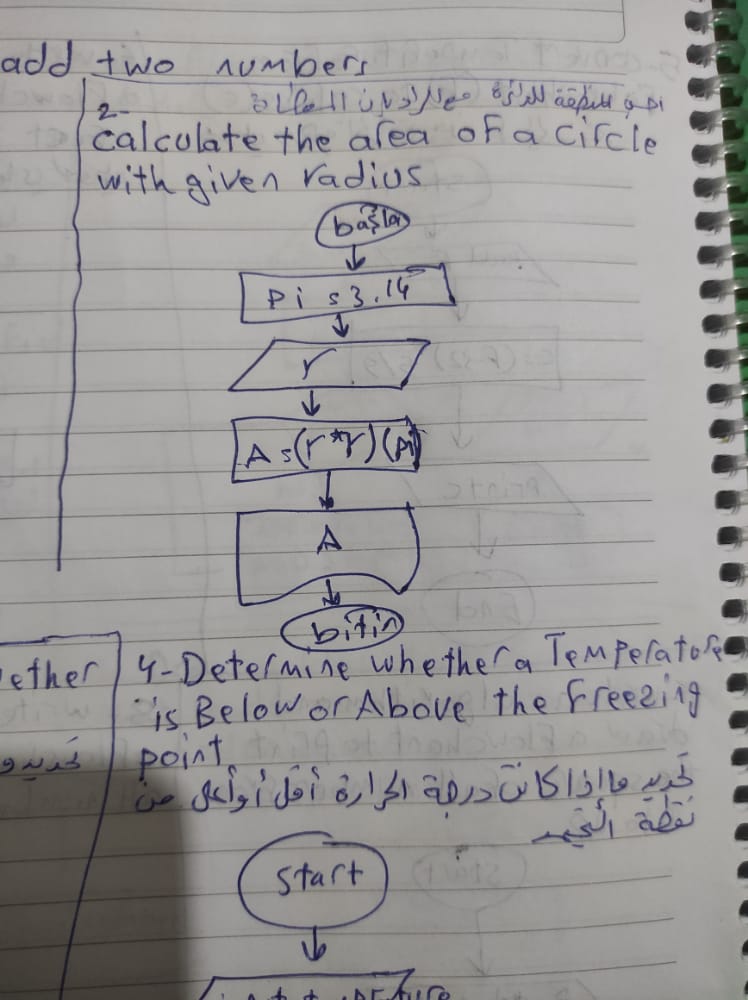 add two numbers
2-
calculate the area of a circle
with given radius
başla
Pi = 3.14
r
A = (r*r)(Pi)
A
bitin
ether
4-Determine whether a Temperature
is Below or Above the Freezing
point
تحديد ما إذا كانت درجة الحرارة أقل أو أعلى من
نقطة التجمد
start